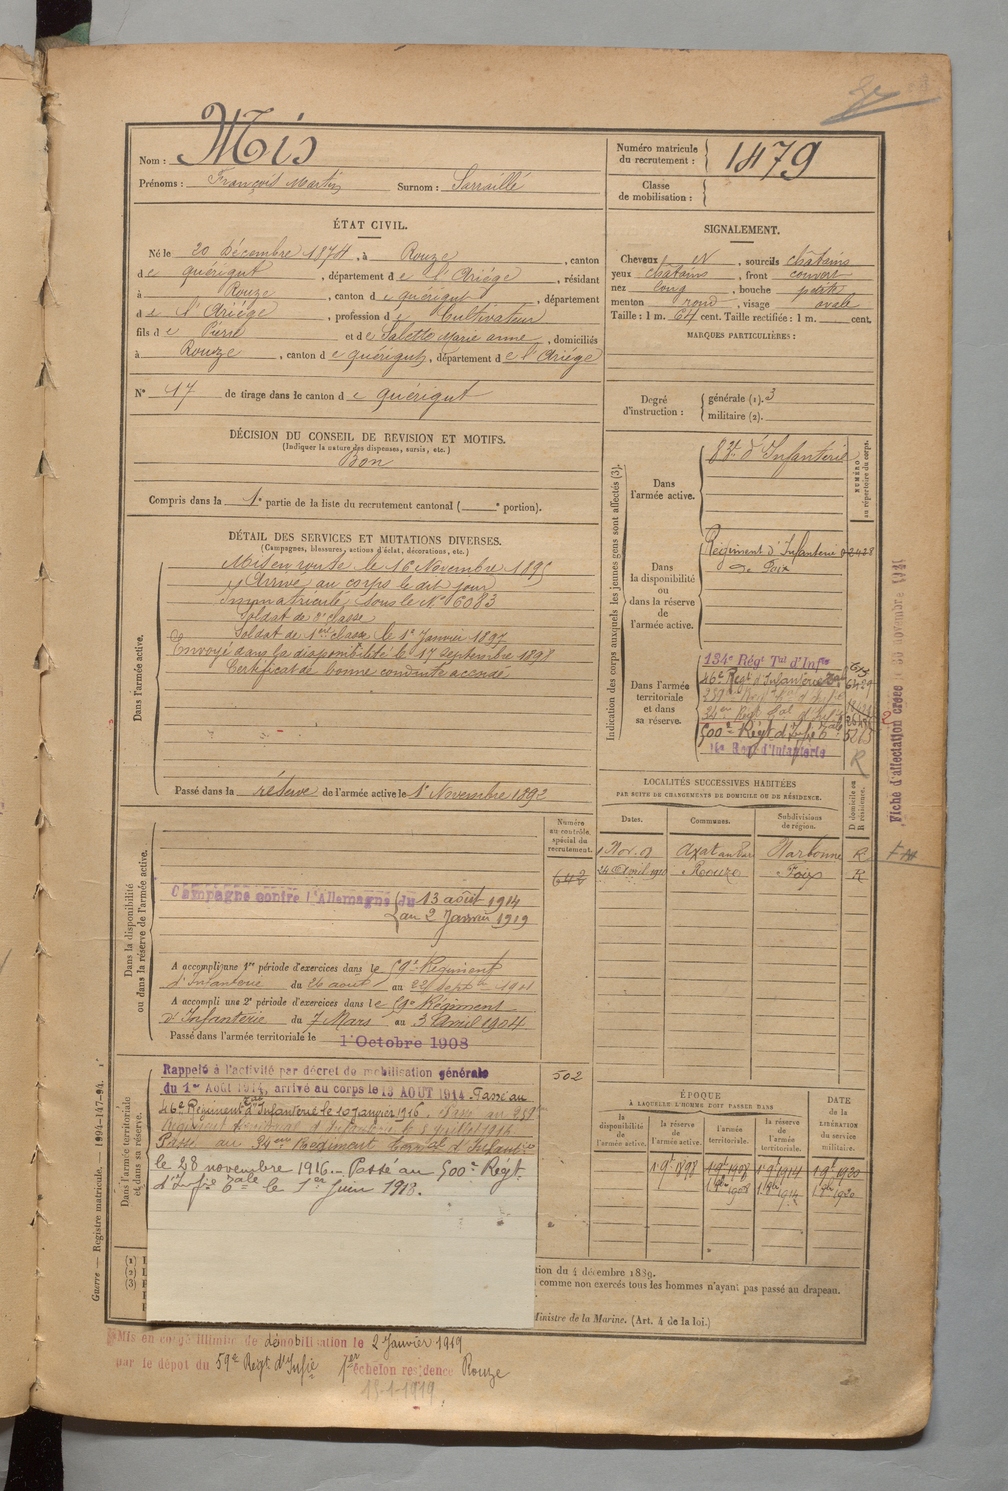 Nom : Mis
Prénoms : François Martin Surnom : Sarraillé
Numéro matricule du recrutement : 1479
Classe de mobilisation :
ÉTAT CIVIL.
Né le 20 Décembre 1874, à Rouze, canton
de quérigut, département de l'Ariége, résidant
à Rouze, canton de quérigut, département
de l'Ariége, profession de Cultivateur
fils de Pierre et de Salette Marie anne, domiciliés
à Rouze, canton de quérigut, département de l'Ariége
N° 17 de tirage dans le canton de quérigut
DÉCISION DU CONSEIL DE REVISION ET MOTIFS.
(Indiquer la nature des dispenses, sursis, etc.)
Bon
Compris dans la 1e partie de la liste du recrutement cantonal ( e portion).
SIGNALEMENT.
Cheveux N, sourcils châtains
yeux châtains, front couvert
nez long, bouche petite
menton rond, visage ovale
Taille : 1 m. 64 cent. Taille rectifiée : 1 m. cent.
MARQUES PARTICULIÈRES :
Degré d'instruction : générale (1). 3
militaire (2).
DÉTAIL DES SERVICES ET MUTATIONS DIVERSES.
(Campagnes, blessures, actions d'éclat, décorations, etc.)
Dans l'armée active.
Mis en route le 16 Novembre 1895
Arrivé au corps le dit jour
Immatriculé sous le N° 6083
Soldat de 2e classe
Soldat de 1ère classe le 1er Janvier 1897
Envoyé dans la disponibilité le 17 septembre 1898
Certificat de bonne conduite accordé
Passé dans la réserve de l'armée active le 1er Novembre 1892
Indication des corps auxquels les jeunes gens sont affectés (3).
NUMÉRO au répertoire du corps.
Dans l'armée active.
d'Infanterie
Dans la disponibilité ou dans la réserve de l'armée active.
Régiment d'Infanterie
de Foix
Dans l'armée territoriale et dans sa réserve.
134e Régt Tal d'Infie
46e Régt d'Infanterie Tale
500e Régt d'Infie Tale 5265
Régt d'Infanterie
R
Fiche d'affectation créée le 30 novembre
LOCALITÉS SUCCESSIVES HABITÉES
PAR SUITE DE CHANGEMENTS DE DOMICILE OU DE RÉSIDENCE.
Dates. Communes. Subdivisions de région. D domicile ou R résidence.
Narbonne R
24 Avril 1910 Rouze Foix R
Dans la disponibilité ou dans la réserve de l'armée active.
Numéro au contrôle spécial du recrutement.
642
Campagne contre l'Allemagne du 13 août 1914
au 2 Janvier 1919
A accompli une 1re période d'exercices dans le 59e Régiment
d'Infanterie du 26 août au 22 sept 1901
A accompli une 2e période d'exercices dans le 59e Régiment
d'Infanterie du 7 Mars au 3 Avril 1904
Passé dans l'armée territoriale le 1 Octobre 1908
Dans l'armée territoriale et dans sa réserve.
502
Rappelé à l'activité par décret de mobilisation générale
du 1er Août 1914, arrivé au corps le 13 AOUT 1914. Passé au
46e Régiment Tal d'Infanterie le 10 Janvier 1916. Passé au 259e
Régiment territorial d'Infanterie le 8 Juillet 1916
Passé au 24eme Régiment Territal d'Infanterie
le 28 novembre 1916. – Passé au 500e Régt
d'Infie Tale le 1er juin 1918.
ÉPOQUE
À LAQUELLE L'HOMME DOIT PASSER DANS
la disponibilité de l'armée active. la réserve de l'armée active. l'armée territoriale. la réserve de l'armée territoriale.
DATE de la LIBÉRATION du service militaire.
1 9e 1898 1 9e 1908 1 9e 1914 1 9e 1920
1 9bre 1908 1 9bre 1914 1 9bre 1920
(1)
(2)
(3)
tion du 4 décembre 1889.
comme non exercés tous les hommes n'ayant pas passé au drapeau.
Ministre de la Marine. (Art. 4 de la loi.)
Guerre. — Registre matricule. — 1994-147-94.
Mis en congé illimité de démobilisation le 2 Janvier 1919
par le dépôt du 59e Régt d'Infie 1er échelon residence Rouze
15-1-1919